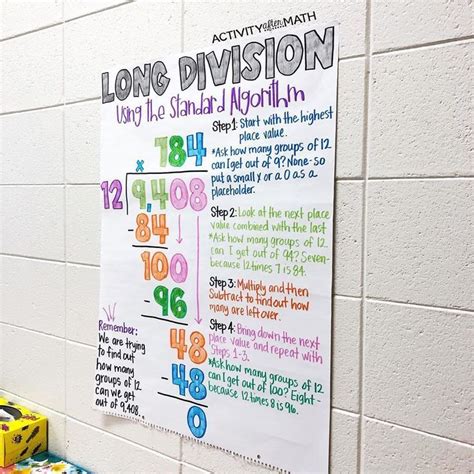 ACTIVITY after MATH
LONG DIVISION
Using the Standard Algorithm
x 784
12 9,408
-84
100
-96
48
-48
0
Step 1: Start with the highest
place value.
*Ask how many groups of 12
can I get out of 9? None-so
put a small x or a 0 as a
placeholder.
Step 2: Look at the next place
value combined with the last
*Ask how many groups of 12
can I get out of 94? Seven-
because 12 times 7 is 84.
Step 3: Multiply and then
Subtract to find out how
many are left over.
Step 4: Bring down the next
place value and repeat with
Steps 1-3.
*Ask how many groups of 12
can I get out of 100? Eight-
because 12 times 8 is 96.
Remember:
We are trying
to find out
how many
groups of 12
can we get
out of 9,408.